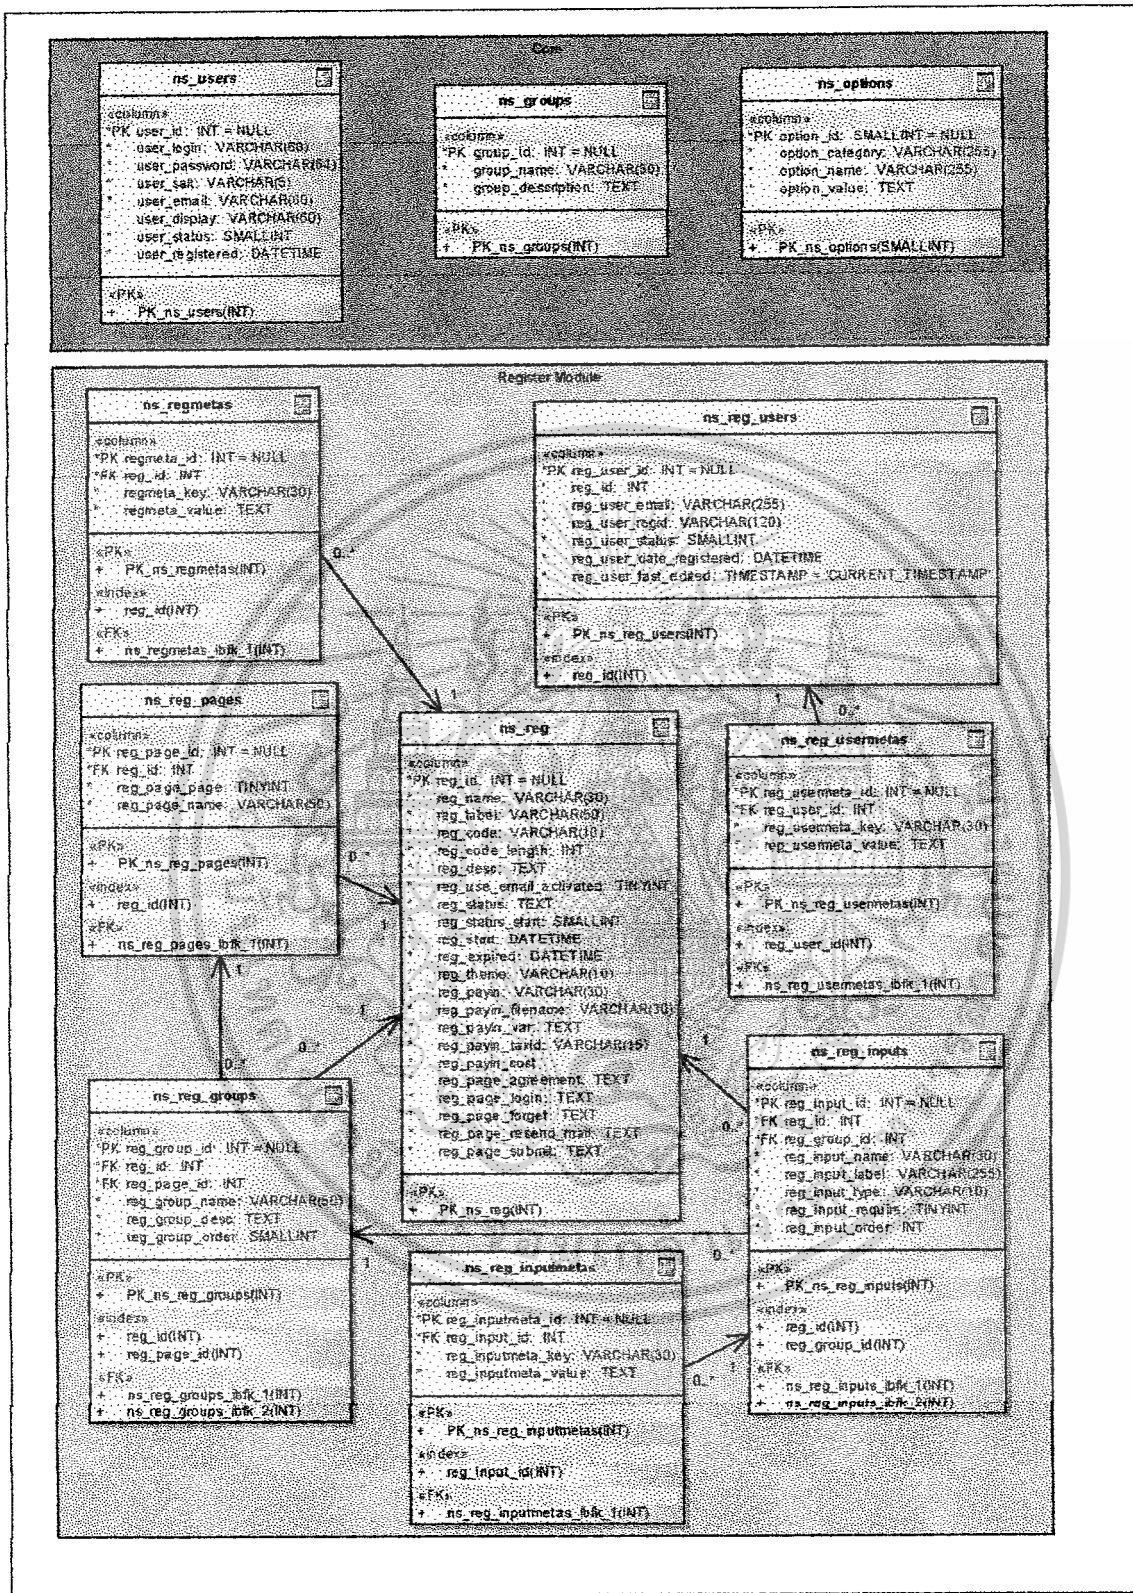 Core
ns_users
«column»
*PK user_id: INT = NULL
* user_login: VARCHAR(60)
* user_password: VARCHAR(64)
* user_salt: VARCHAR(5)
* user_email: VARCHAR(60)
* user_display: VARCHAR(50)
* user_status: SMALLINT
* user_registered: DATETIME
«PK»
+ PK_ns_users(INT)
ns_groups
«column»
*PK group_id: INT = NULL
* group_name: VARCHAR(50)
* group_description: TEXT
«PK»
+ PK_ns_groups(INT)
ns_options
«column»
*PK option_id: SMALLINT = NULL
* option_category: VARCHAR(255)
* option_name: VARCHAR(255)
* option_value: TEXT
«PK»
+ PK_ns_options(SMALLINT)
Register Module
ns_regmetas
«column»
*PK regmeta_id: INT = NULL
*FK reg_id: INT
* regmeta_key: VARCHAR(30)
* regmeta_value: TEXT
«PK»
+ PK_ns_regmetas(INT)
«index»
+ reg_id(INT)
«FK»
+ ns_regmetas_ibfk_1(INT)
0..*
1
ns_reg_users
«column»
*PK reg_user_id: INT = NULL
* reg_id: INT
* reg_user_email: VARCHAR(255)
* reg_user_regid: VARCHAR(120)
* reg_user_status: SMALLINT
* reg_user_date_registered: DATETIME
* reg_user_last_edited: TIMESTAMP = 'CURRENT_TIMESTAMP'
«PK»
+ PK_ns_reg_users(INT)
«index»
+ reg_id(INT)
1
0..*
ns_reg_pages
«column»
*PK reg_page_id: INT = NULL
*FK reg_id: INT
* reg_page_page: TINYINT
* reg_page_name: VARCHAR(50)
«PK»
+ PK_ns_reg_pages(INT)
«index»
+ reg_id(INT)
«FK»
+ ns_reg_pages_ibfk_1(INT)
0..*
1
ns_reg
«column»
*PK reg_id: INT = NULL
* reg_name: VARCHAR(30)
* reg_label: VARCHAR(50)
* reg_code: VARCHAR(10)
* reg_code_length: INT
* reg_desc: TEXT
* reg_use_email_activated: TINYINT
* reg_status: TEXT
* reg_status_start: SMALLINT
* reg_start: DATETIME
* reg_expired: DATETIME
* reg_theme: VARCHAR(10)
* reg_payin: VARCHAR(30)
* reg_payin_filename: VARCHAR(30)
* reg_payin_var: TEXT
* reg_payin_taxid: VARCHAR(15)
* reg_payin_cost
* reg_page_agreement: TEXT
* reg_page_login: TEXT
* reg_page_forget: TEXT
* reg_page_resend_mail: TEXT
* reg_page_submit: TEXT
«PK»
+ PK_ns_reg(INT)
ns_reg_usermetas
«column»
*PK reg_usermeta_id: INT = NULL
*FK reg_user_id: INT
* reg_usermeta_key: VARCHAR(30)
* reg_usermeta_value: TEXT
«PK»
+ PK_ns_reg_usermetas(INT)
«index»
+ reg_user_id(INT)
«FK»
+ ns_reg_usermetas_ibfk_1(INT)
1
0..*
1
0..*
ns_reg_groups
«column»
*PK reg_group_id: INT = NULL
*FK reg_id: INT
*FK reg_page_id: INT
* reg_group_name: VARCHAR(50)
* reg_group_desc: TEXT
* reg_group_order: SMALLINT
«PK»
+ PK_ns_reg_groups(INT)
«index»
+ reg_id(INT)
+ reg_page_id(INT)
«FK»
+ ns_reg_groups_ibfk_1(INT)
+ ns_reg_groups_ibfk_2(INT)
1
0..*
ns_reg_inputs
«column»
*PK reg_input_id: INT = NULL
*FK reg_id: INT
*FK reg_group_id: INT
* reg_input_name: VARCHAR(30)
* reg_input_label: VARCHAR(255)
* reg_input_type: VARCHAR(10)
* reg_input_require: TINYINT
* reg_input_order: INT
«PK»
+ PK_ns_reg_inputs(INT)
«index»
+ reg_id(INT)
+ reg_group_id(INT)
«FK»
+ ns_reg_inputs_ibfk_1(INT)
+ ns_reg_inputs_ibfk_2(INT)
0..*
1
ns_reg_inputmetas
«column»
*PK reg_inputmeta_id: INT = NULL
*FK reg_input_id: INT
* reg_inputmeta_key: VARCHAR(30)
* reg_inputmeta_value: TEXT
«PK»
+ PK_ns_reg_inputmetas(INT)
«index»
+ reg_input_id(INT)
«FK»
+ ns_reg_inputmetas_ibfk_1(INT)
0..*
1